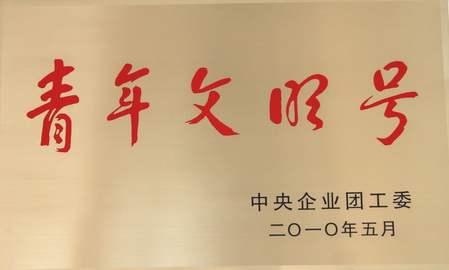 青年文明号
中央企业团工委
二〇一〇年五月